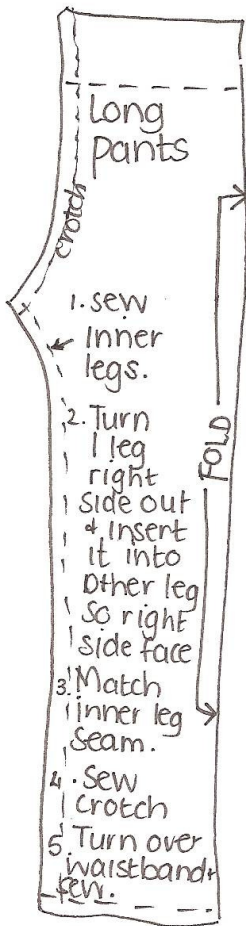 Long
pants
crotch
1. sew
inner
legs.
2. Turn
1 leg
right
side out
& insert
it into
other leg
so right
side face
3. Match
inner leg
seam.
4. Sew
crotch
5. Turn over
waistband +
sew.
FOLD